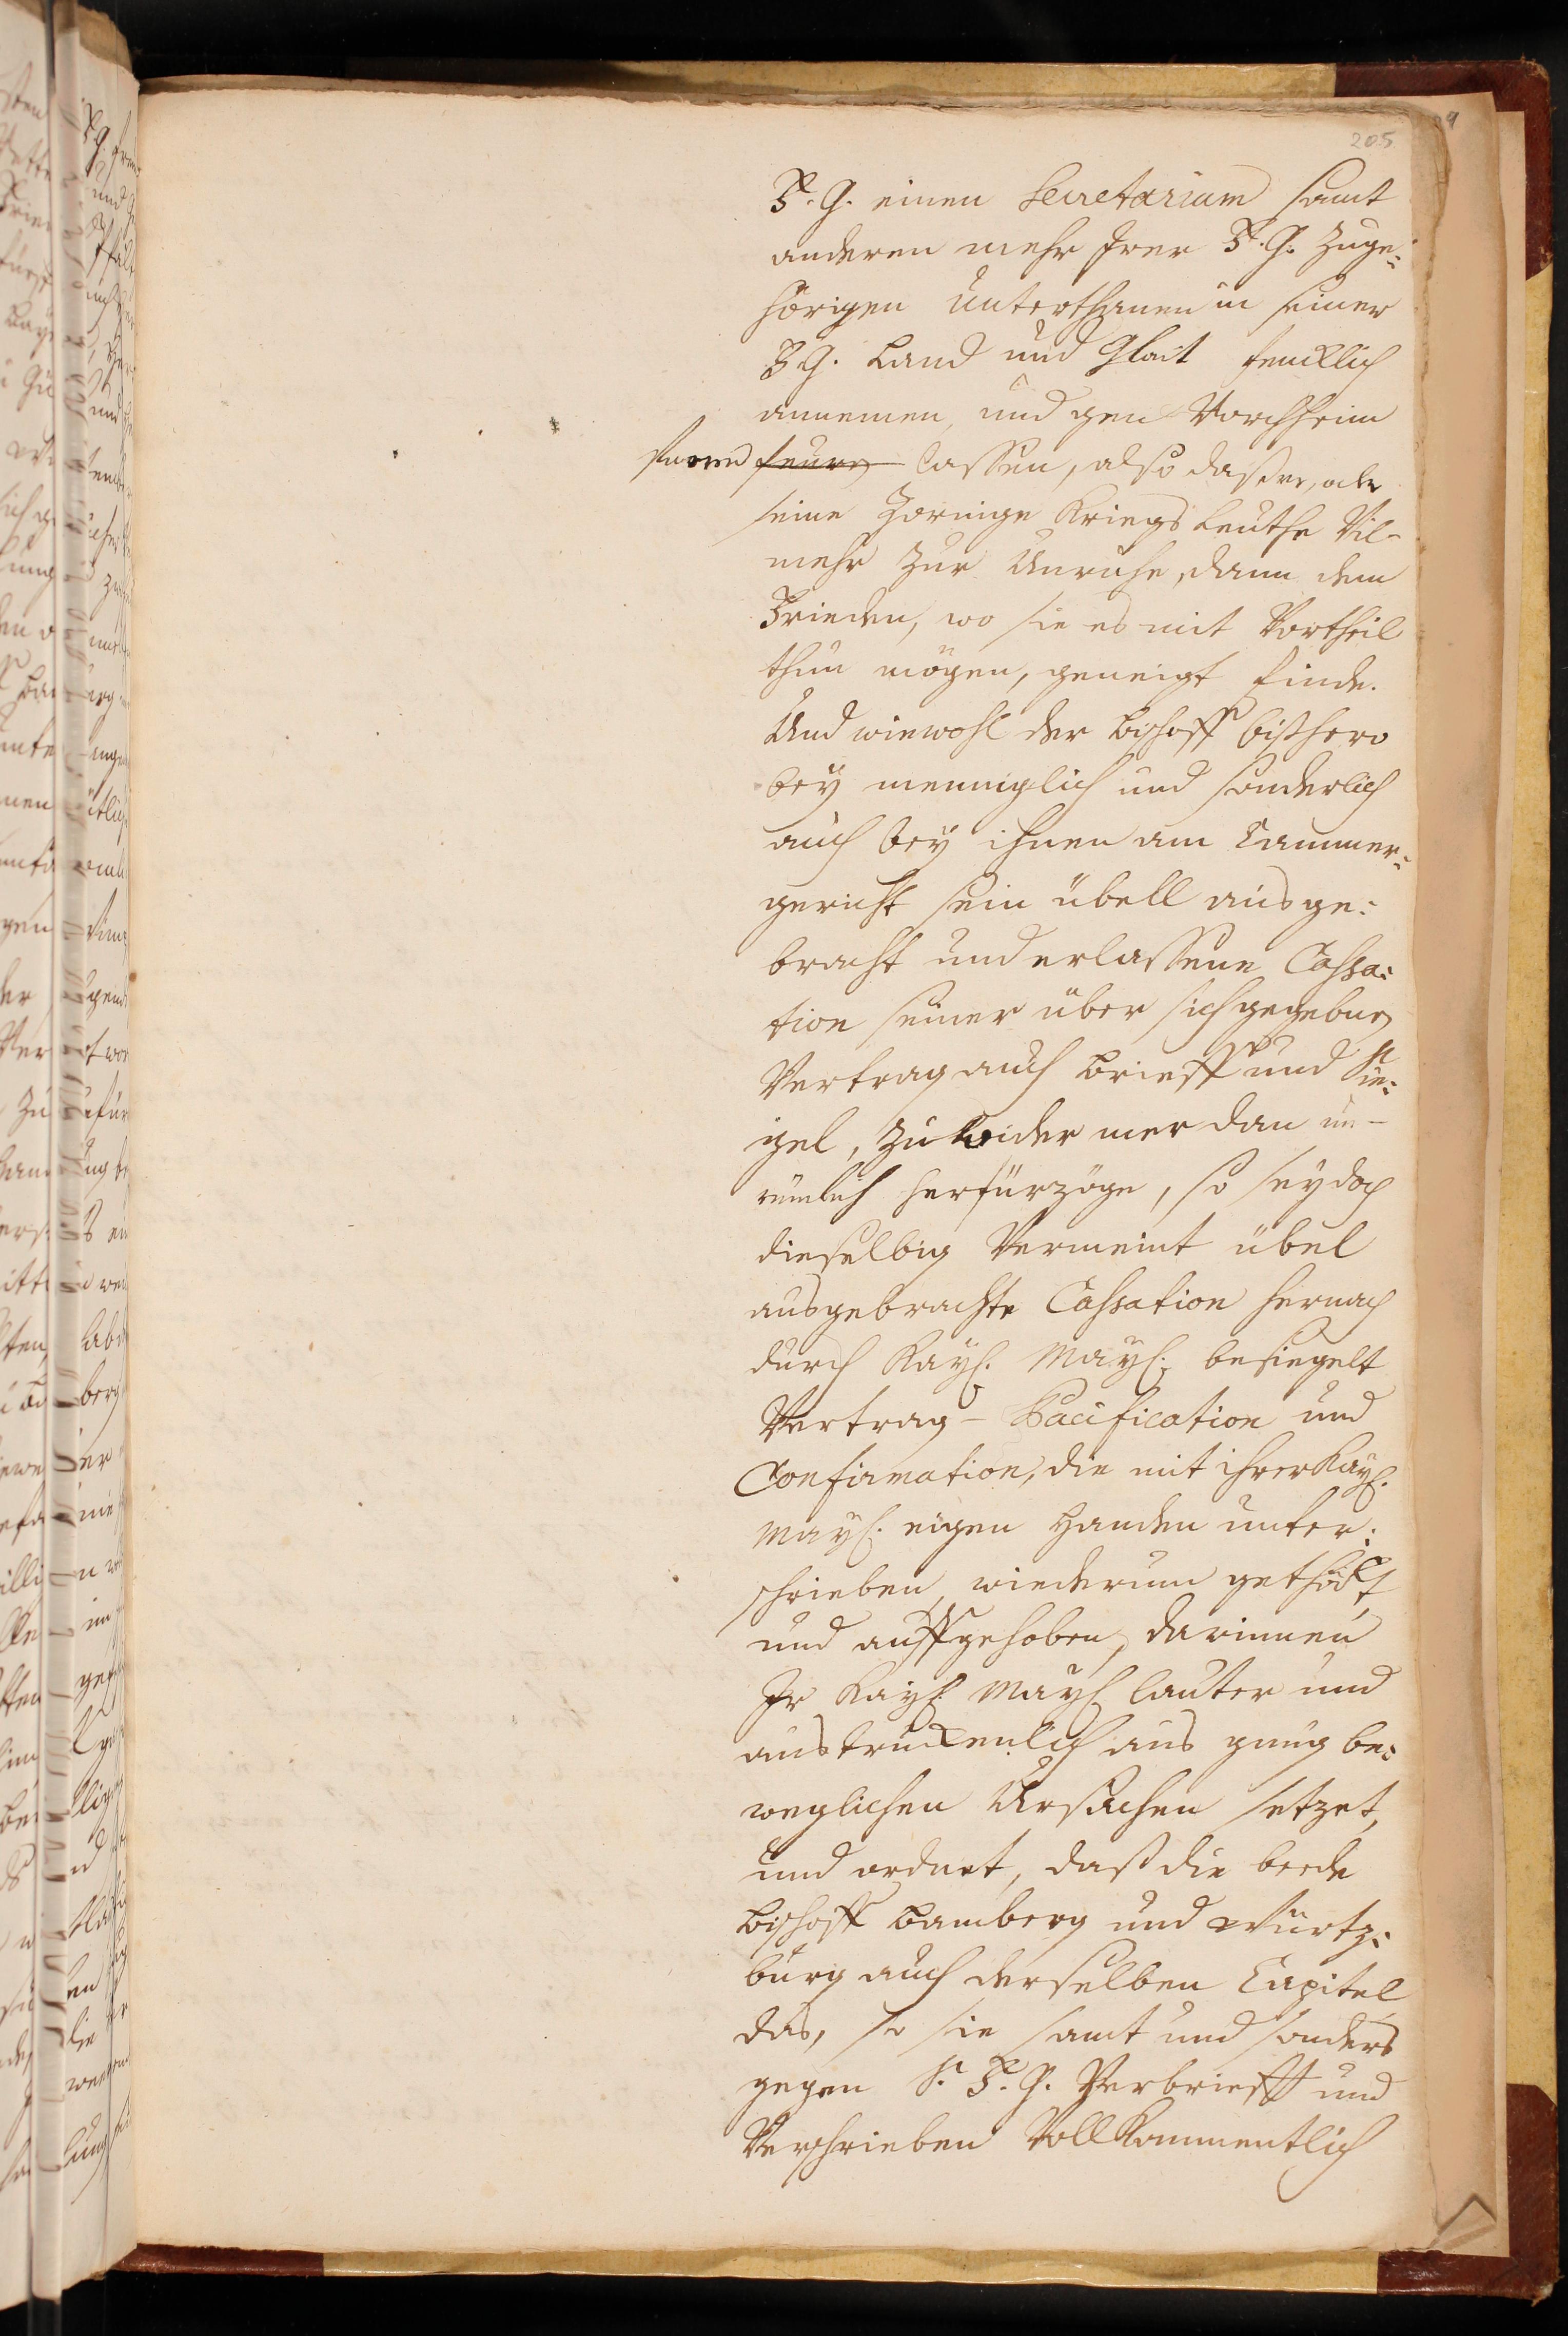 205
F. G. einen Secretarium samt
anderen mehr Irer F. G. Zuge:
hörigen Unterthanen in seiner
F G. Land und Glait fencklich
annemen, und gen Vorchheim
lassen, also daß er, oder
seine Zornige Kriegs Leuthe Vil-
mehr zur Unruhe, dann dem
Frieden, wo sie es mit Vortheil
thun mögen, geneigt finde.
Und wiewohl der Bischoff bißhero
bey menniglich und sonderlich
auch bey ihnen am Cammer:
gericht sein übell ausge:
bracht und erlassene Cassa:
tion seiner über sich gegebner
Vertrag auch Brieff und Sie:
gel, zu wider mer dan un-
rümlich herfürzöge, so sey doch
dieselbig Vermeint übel
ausgebrachte Cassation hernach
durch Kay: May: besiegelt
Vertrag - Pacification und
Confirmation, die mit ihrer Kay:
May: eigen Handen unter:
schrieben, wiederum gethödt
und auffgehoben, darinnen
Ir Kay: May: lauter und
austruckenlich aus gnug be:
weglichen Ursachen setzet,
und ordnet, daß die beede
Bischoff Bamberg und Würtz:
burg auch derselben Capitel
das, so sie samt und sonders
gegen S. F. G. Verbriefft und
Verschrieben Vollkommentlich